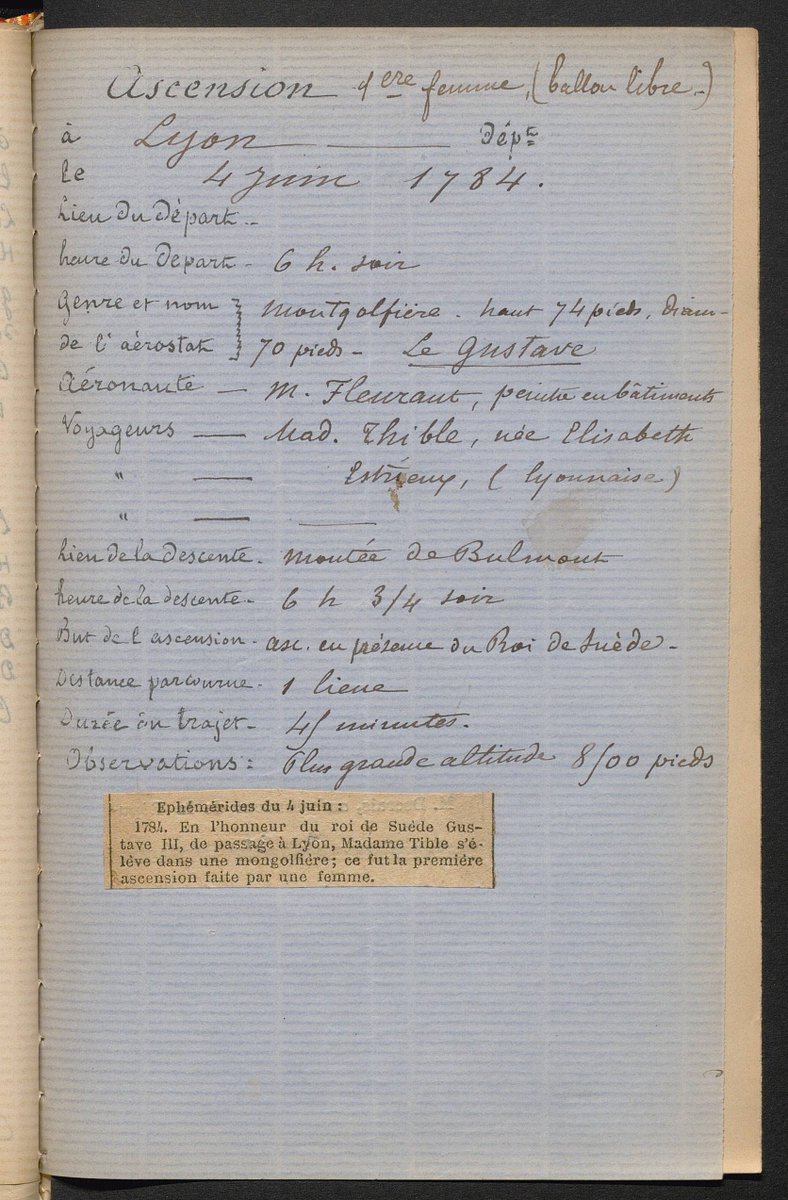 Ascension 1ere femme, (ballon libre-)
à Lyon — Dépt
le 4 juin 1784.
Lieu du départ -
heure du départ - 6 h. soir
Genre et nom } montgolfière - haut 74 pieds, diam-
de l'aérostat } 70 pieds - Le Gustave
Aéronaute — M. Fleurant, peintre en bâtiments
Voyageurs — Mad. Thible, née Elisabeth
" — Estrieux, (lyonnaise)
" — —
Lieu de la descente - montée de Bulmont
heure de la descente - 6 h 3/4 soir
But de l'ascension - asc. en présence du Roi de Suède -
Distance parcourue - 1 lieue
Durée du trajet - 45 minutes.
Observations: Plus grande altitude 8500 pieds
Ephémérides du 4 juin :
1784. En l'honneur du roi de Suède Gus-
tave III, de passage à Lyon, Madame Tible s'é-
lève dans une mongolfière; ce fut la première
ascension faite par une femme.